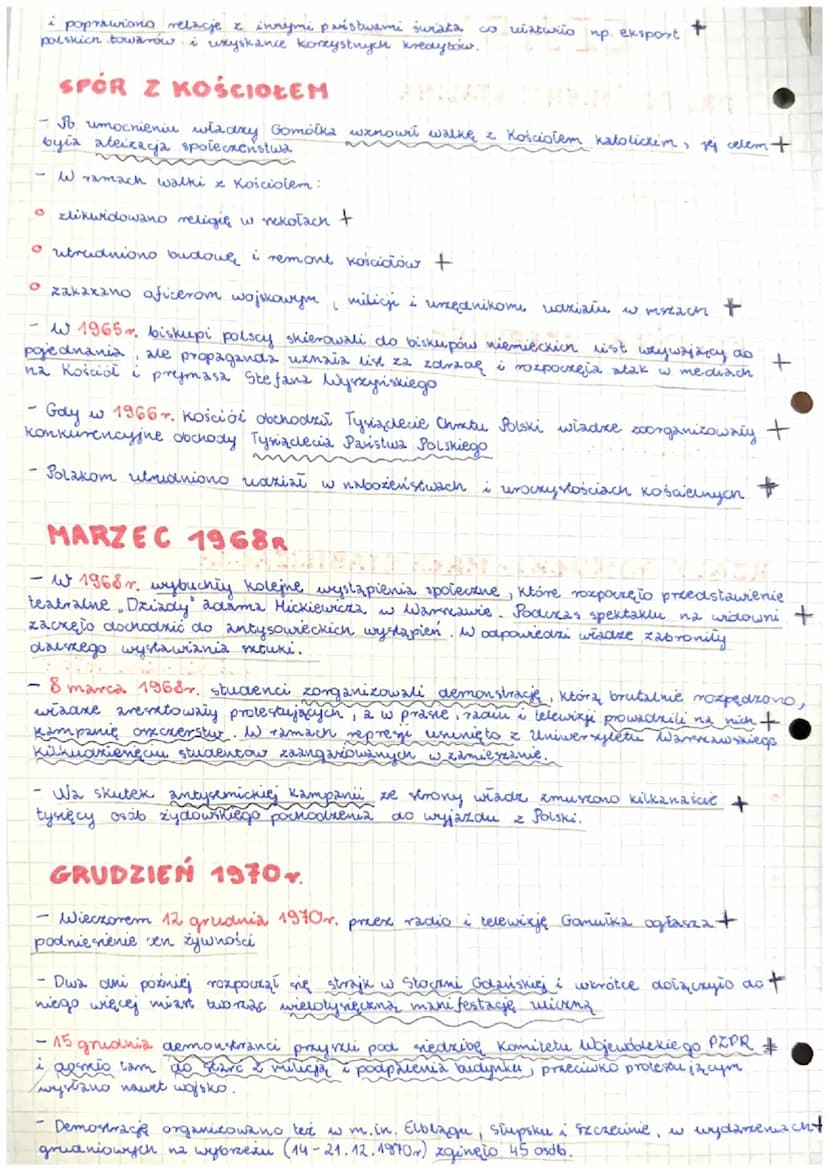 i poprawiono relacje z innymi państwami świata co ułatwiło np. eksport +
polskich towarów i uzyskanie korzystnych kredytów.
SPÓR Z KOŚCIOŁEM
- Po umocnieniu władzy Gomółka wznowił walkę z Kościołem katolickim, jej celem +
była ateizacja społeczeństwa
- W ramach walki z Kościołem:
○ zlikwidowano religię w szkołach +
○ utrudniono budowę i remont kościołów +
○ zakazano oficerom wojskowym, milicji i urzędnikom udziału w mszach +
- W 1965r. biskupi polscy skierowali do biskupów niemieckich list wzywający do +
pojednania, ale propaganda uznała list za zdradę i rozpoczęła atak w mediach
na Kościół i prymasa Stefana Wyszyńskiego
- Gdy w 1966r. Kościół obchodził Tysiąclecie Chrztu Polski władze zoorganizowały +
konkurencyjne obchody Tysiąclecia Państwa Polskiego
- Polakom utrudniono udział w nabożeństwach i uroczystościach kościelnych +
MARZEC 1968R
- W 1968r. wybuchły kolejne wystąpienia społeczne, które rozpoczęło przedstawienie
teatralne „Dziady" adama Mickiewicza w Warszawie. Podczas spektaklu na widowni +
zaczęło dochodzić do antysowieckich wystąpień. W odpowiedzi władze zabroniły
dalszego wystawiania sztuki.
- 8 marca 1968r. studenci zorganizowali demonstrację, którą brutalnie rozpędzono,
władze aresztowały protestujących, a w prasie, radiu i telewizji prowadzili na nich +
kampanię oszczerstw. W ramach represji usunięto z Uniwersytetu Warszawskiego
kilkudziesięciu studentów zaangażowanych w zamieszanie.
- Na skutek antysemickiej kampanii ze strony władz zmuszono kilkanaście +
tysięcy osób żydowskiego pochodzenia do wyjazdu z Polski.
GRUDZIEŃ 1970r.
- Wieczorem 12 grudnia 1970r. przez radio i telewizję Gomułka ogłasza +
podniesienie cen żywności
- Dwa dni pozniej rozpoczął się strajk w Stoczni Gdańskiej i wkrótce dołączyło do +
niego więcej miast tworząc wielotysięczną manifestację uliczną
- 15 grudnia demonstranci przyszli pod siedzibę Komitetu Wojewódzkiego PZPR +
i doszło tam do starć z milicją i podpalenia budynku, przeciwko protestującym
wysłano nawet wojsko.
- Demostrację organizowano też w m.in. Elblągu, Słupsku i Szczecinie, w wydarzeniach +
grudniowych na wybrzeżu (14-21.12.1970r) zginęło 45 osób.